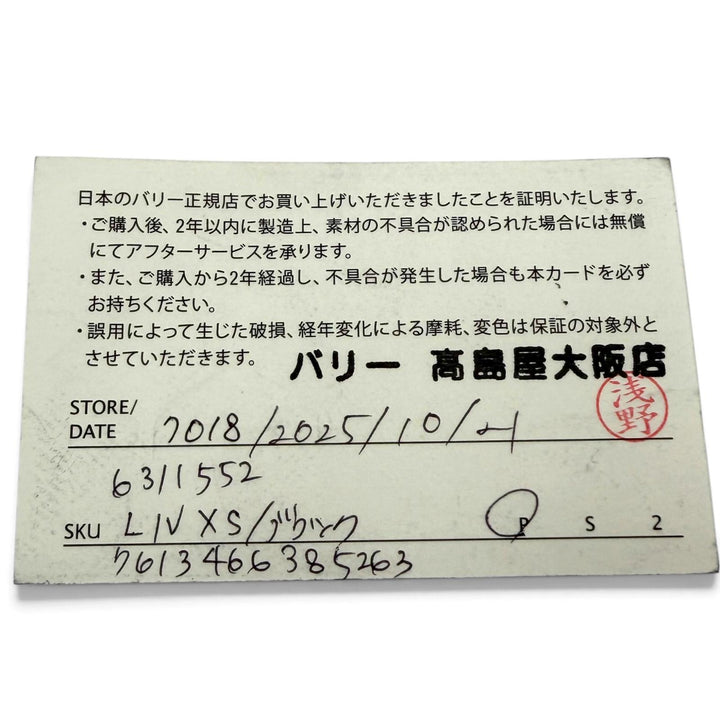 日本のバリー正規店でお買い上げいただきましたことを証明いたします。
・ご購入後、2年以内に製造上、素材の不具合が認められた場合には無償
にてアフターサービスを承ります。
・また、ご購入から2年経過し、不具合が発生した場合も本カードを必ず
お持ちください。
・誤用によって生じた破損、経年変化による摩耗、変色は保証の対象外と
させていただきます。
バリー 髙島屋大阪店
浅野
STORE/
DATE 7018/2025/10/21
6311552
SKU LIV XS/ブラック P S 2
7613466385263